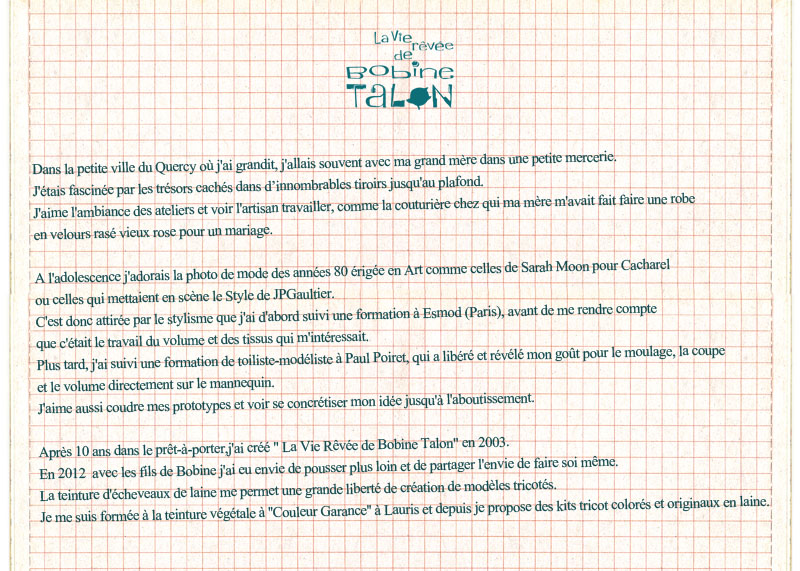 La Vie
rêvée
de
Bobine
TaLON
Dans la petite ville du Quercy où j'ai grandit, j'allais souvent avec ma grand mère dans une petite mercerie.
J'étais fascinée par les trésors cachés dans d'innombrables tiroirs jusqu'au plafond.
J'aime l'ambiance des ateliers et voir l'artisan travailler, comme la couturière chez qui ma mère m'avait fait faire une robe
en velours rasé vieux rose pour un mariage.
A l'adolescence j'adorais la photo de mode des années 80 érigée en Art comme celles de Sarah Moon pour Cacharel
ou celles qui mettaient en scène le Style de JPGaultier.
C'est donc attirée par le stylisme que j'ai d'abord suivi une formation à Esmod (Paris), avant de me rendre compte
que c'était le travail du volume et des tissus qui m'intéressait.
Plus tard, j'ai suivi une formation de toiliste-modéliste à Paul Poiret, qui a libéré et révélé mon goût pour le moulage, la coupe
et le volume directement sur le mannequin.
J'aime aussi coudre mes prototypes et voir se concrétiser mon idée jusqu'à l'aboutissement.
Après 10 ans dans le prêt-à-porter,j'ai créé " La Vie Rêvée de Bobine Talon" en 2003.
En 2012 avec les fils de Bobine j'ai eu envie de pousser plus loin et de partager l'envie de faire soi même.
La teinture d'écheveaux de laine me permet une grande liberté de création de modèles tricotés.
Je me suis formée à la teinture végétale à "Couleur Garance" à Lauris et depuis je propose des kits tricot colorés et originaux en laine.